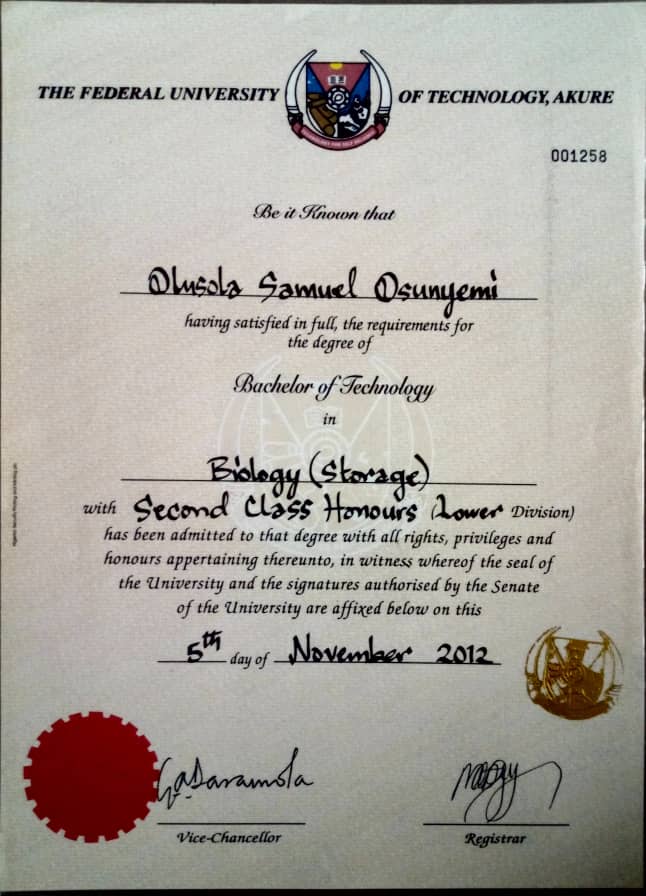 THE FEDERAL UNIVERSITY OF TECHNOLOGY, AKURE
001258
Be it Known that
Olusola Samuel Osunyemi
having satisfied in full, the requirements for
the degree of
Bachelor of Technology
in
Biology (Storage)
with Second Class Honours (Lower Division)
has been admitted to that degree with all rights, privileges and
honours appertaining thereunto, in witness whereof the seal of
the University and the signatures authorised by the Senate
of the University are affixed below on this
5th day of November 2012
Vice-Chancellor Registrar